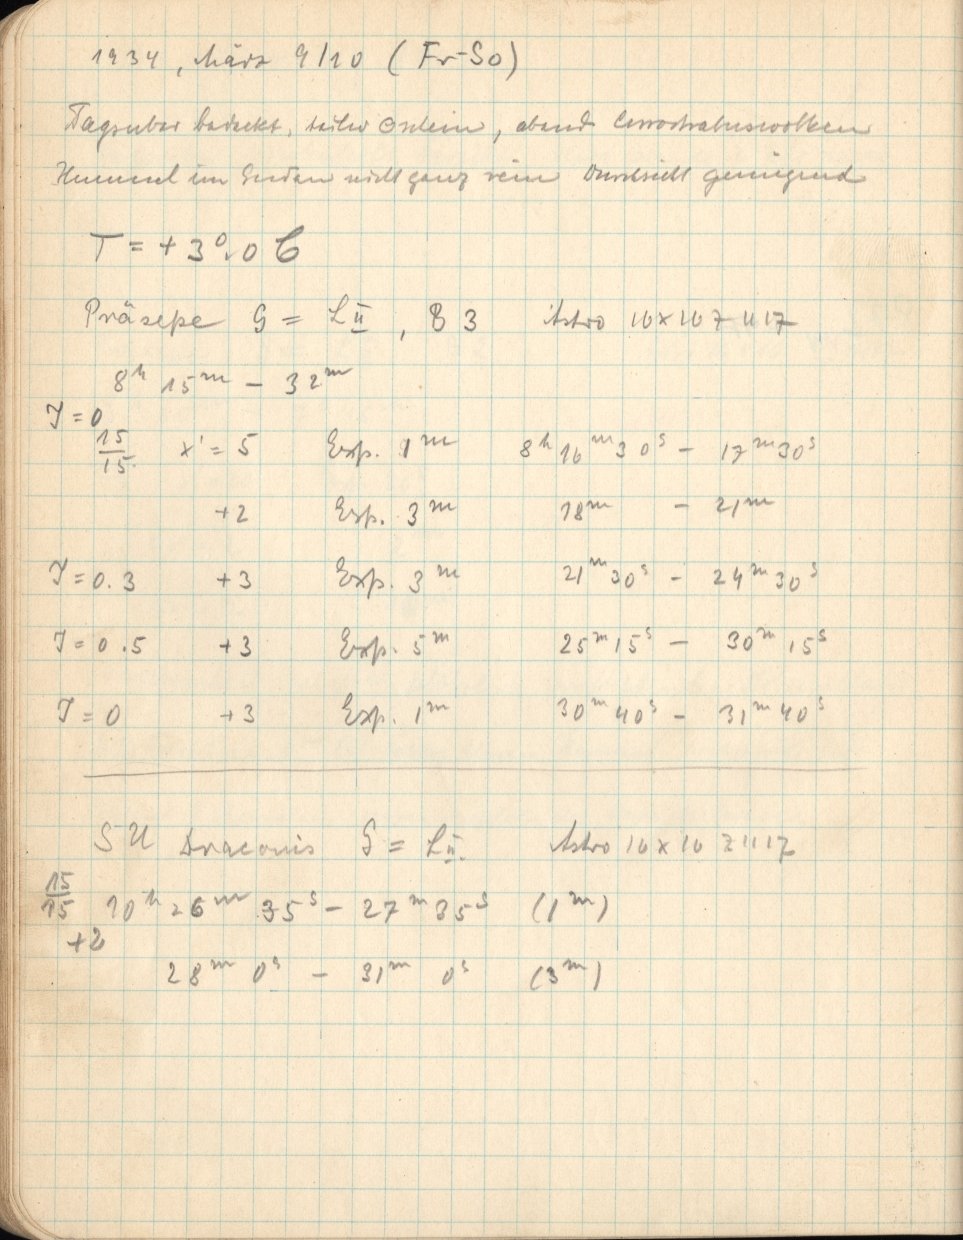 1934, März 9/10 (Fr-So)
Tagsüber bedeckt, teilw ⊙schein, abends Cirrostratuswolken
Himmel im Süden nicht ganz rein Durchsicht genügend
T = + 3°.0 C
Präsepe G = L II, B 3 Astro 16 x 16 Z 1117
8h 15m – 32m
J = 0
15/15 x' = 5 Exp. 1m 8h 16m 30s – 17m 30s
+2 Exp. 3m 18m – 21m
J = 0.3 +3 Exp. 3m 21m 30s – 24m 30s
J = 0.5 +3 Exp. 5m 25m 15s – 30m 15s
J = 0 +3 Exp. 1m 30m 40s – 31m 40s
SU Draconis G = L II. Astro 16 x 16 Z 1117
15/15 10h 26m 35s – 27m 35s (1m)
+2
28m 0s – 31m 0s (3m)